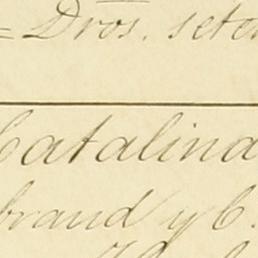 = Dros. seten
Catalina
brand y C.